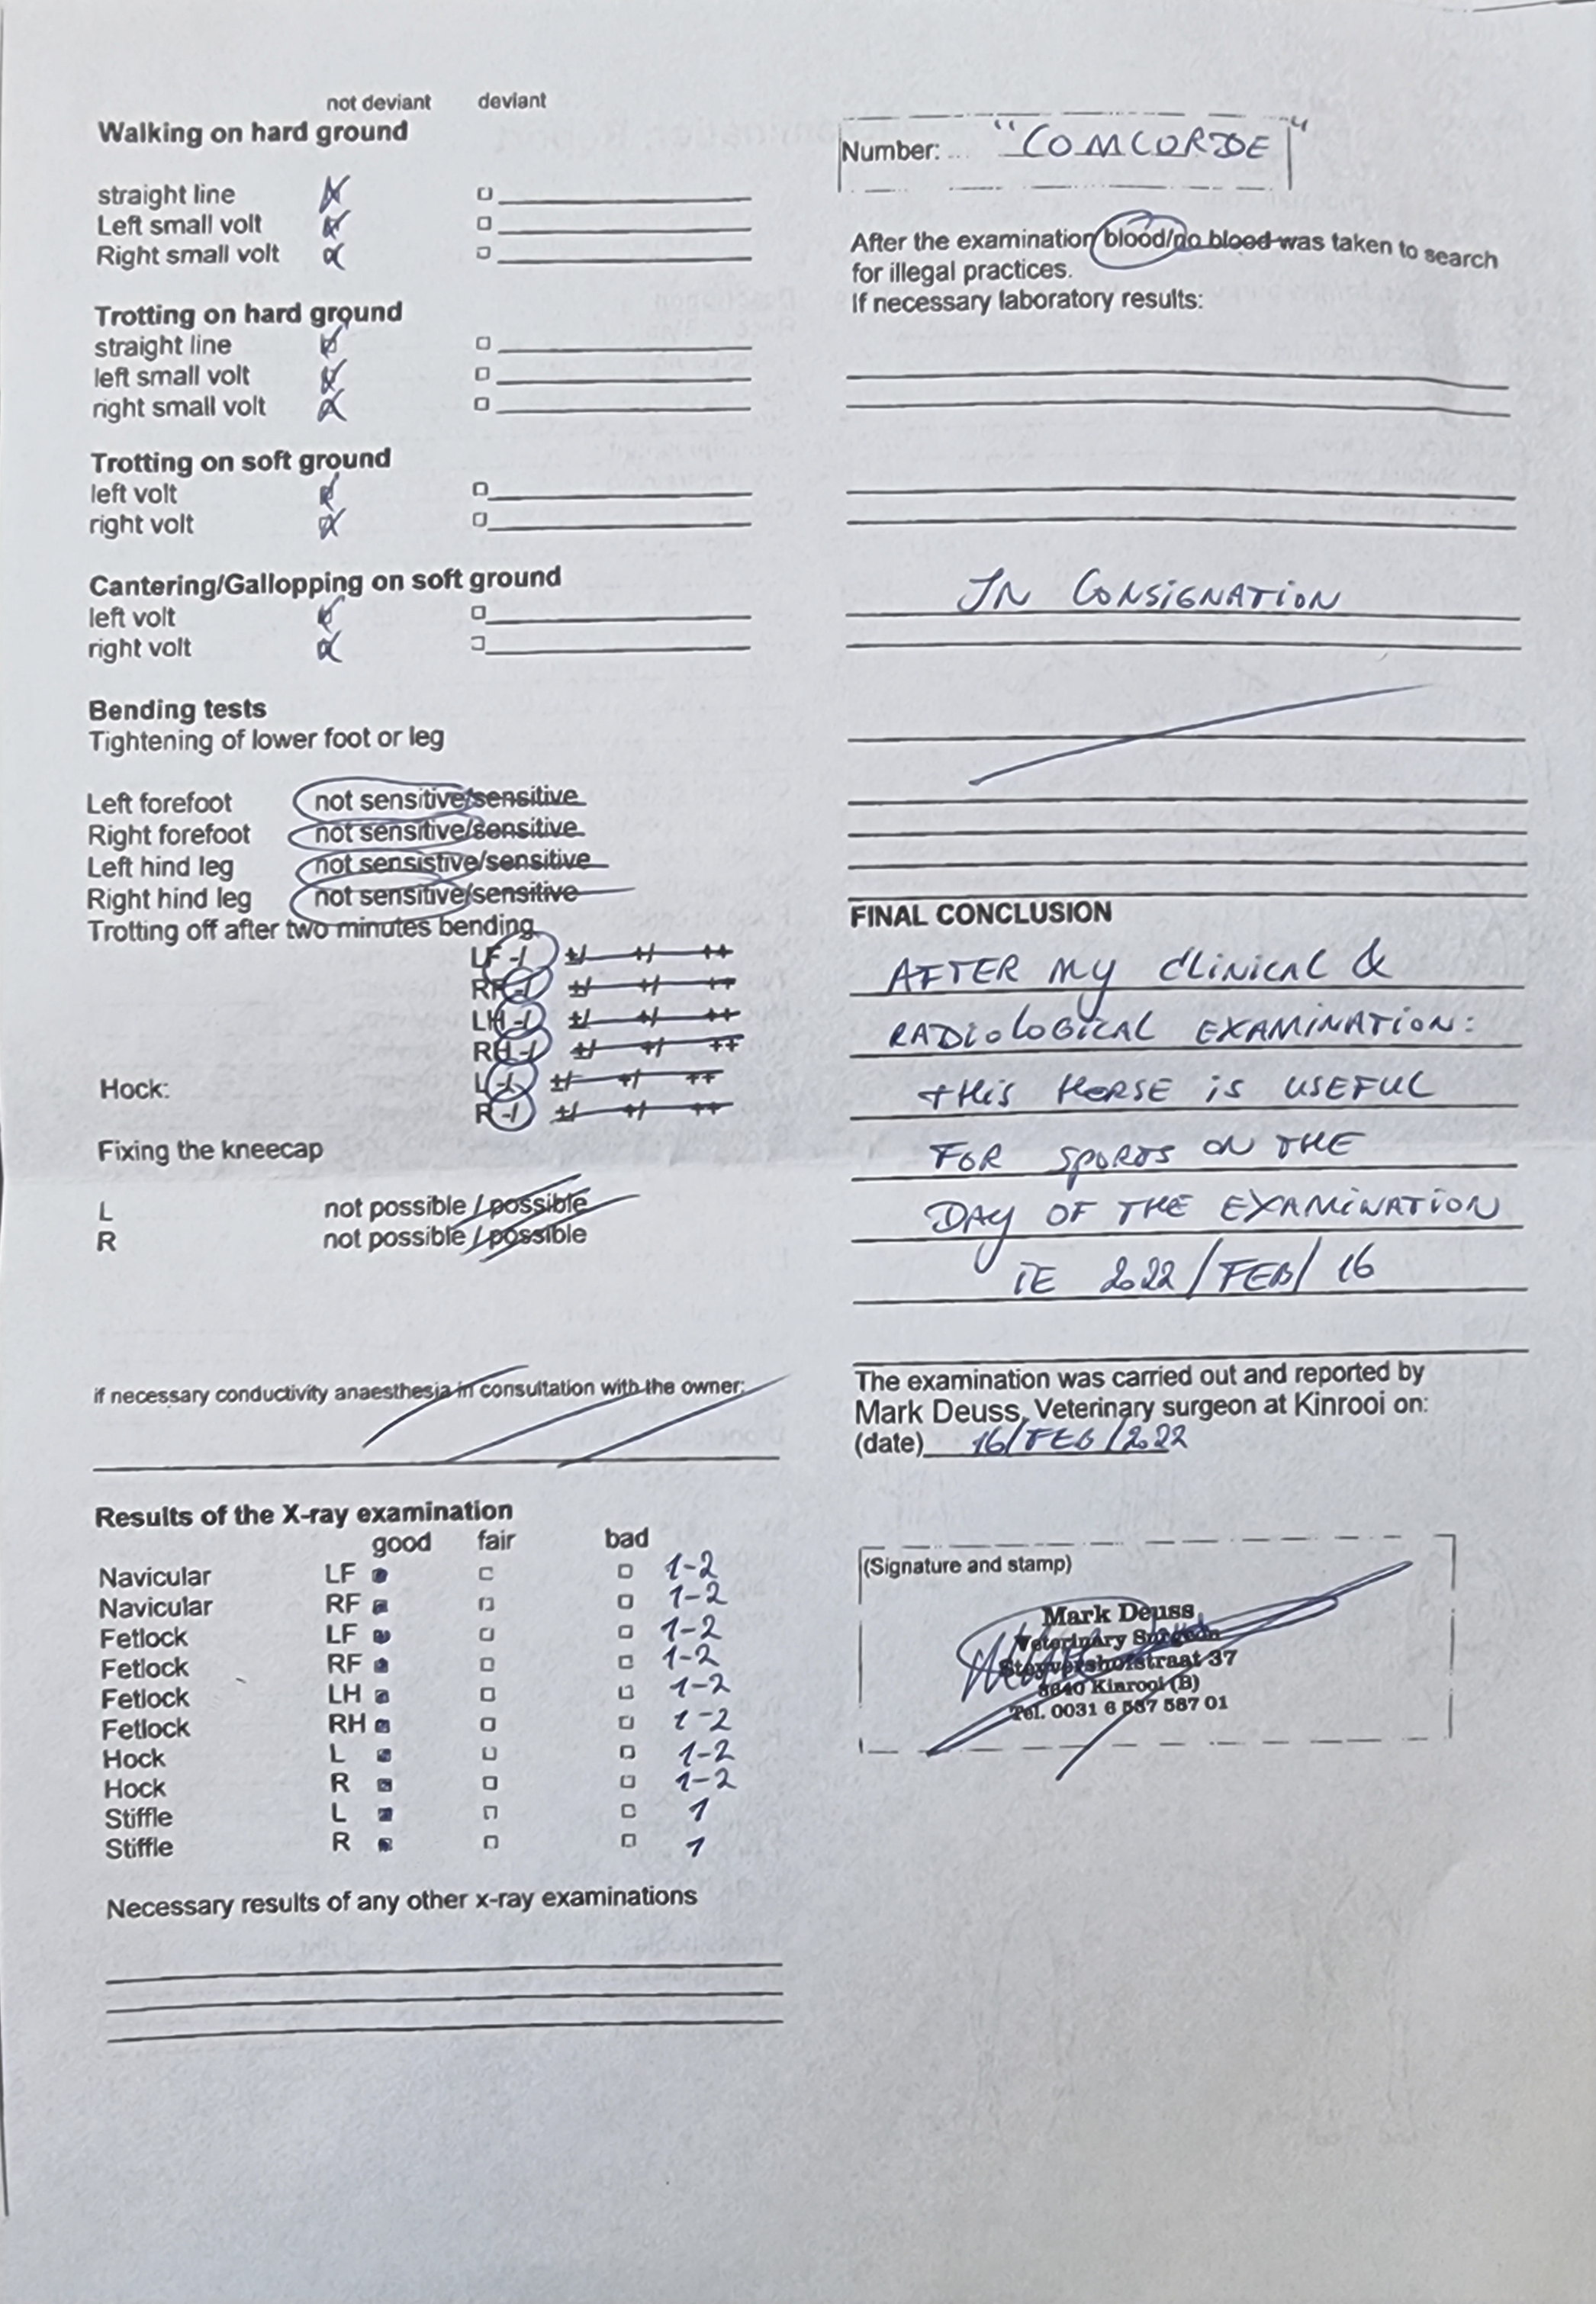 not deviant deviant
Walking on hard ground
straight line
Left small volt
Right small volt
Trotting on hard ground
straight line
left small volt
right small volt
Trotting on soft ground
left volt
right volt
Cantering/Gallopping on soft ground
left volt
right volt
Bending tests
Tightening of lower foot or leg
Left forefoot not sensitive/sensitive
Right forefoot not sensitive/sensitive
Left hind leg not sensistive/sensitive
Right hind leg not sensitive/sensitive
Trotting off after two minutes bending
LF -/ ±/ +/ ++
RF -/ ±/ +/ ++
LH -/ ±/ +/ ++
RH -/ ±/ +/ ++
Hock: L -/ ±/ +/ ++
R -/ ±/ +/ ++
Fixing the kneecap
L not possible / possible
R not possible / possible
if necessary conductivity anaesthesia in consultation with the owner:
Results of the X-ray examination
good fair bad
Navicular LF 1-2
Navicular RF 1-2
Fetlock LF 1-2
Fetlock RF 1-2
Fetlock LH 1-2
Fetlock RH 1-2
Hock L 1-2
Hock R 1-2
Stiffle L 1
Stiffle R 1
Necessary results of any other x-ray examinations
Number: "COMCORDE"
After the examination blood/no blood was taken to search
for illegal practices.
If necessary laboratory results:
IN CONSIGNATION
FINAL CONCLUSION
AFTER MY CLINICAL &
RADIOLOGICAL EXAMINATION:
THIS HORSE IS USEFUL
FOR SPORTS ON THE
DAY OF THE EXAMINATION
IE 2022/FEB/16
The examination was carried out and reported by
Mark Deuss, Veterinary surgeon at Kinrooi on:
(date) 16/FEB/2022
(Signature and stamp)
Mark Deuss
Veterinary Surgeon
37
Kinrooi (B)
Tel. 0031 6 587 587 01